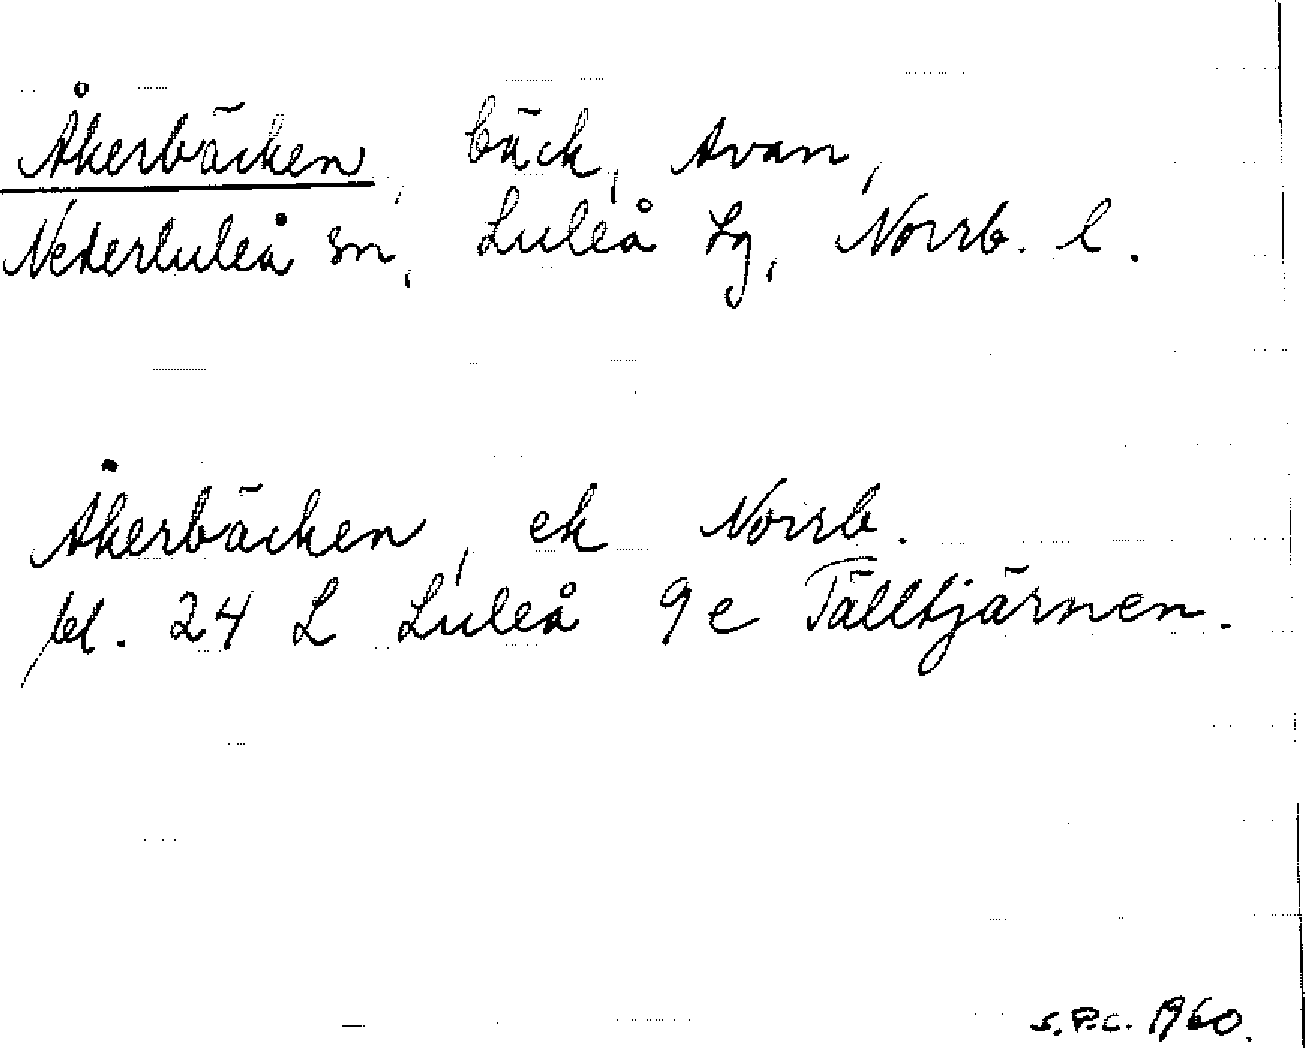 Åkerbäcken, bäck, Avan,
Nederluleå sn, Luleå tg, Norrb. l.
Åkerbäcken, ek Norrb.
bl. 24 L Luleå 9 e Tälltjärnen.
S.P.C. 1960.